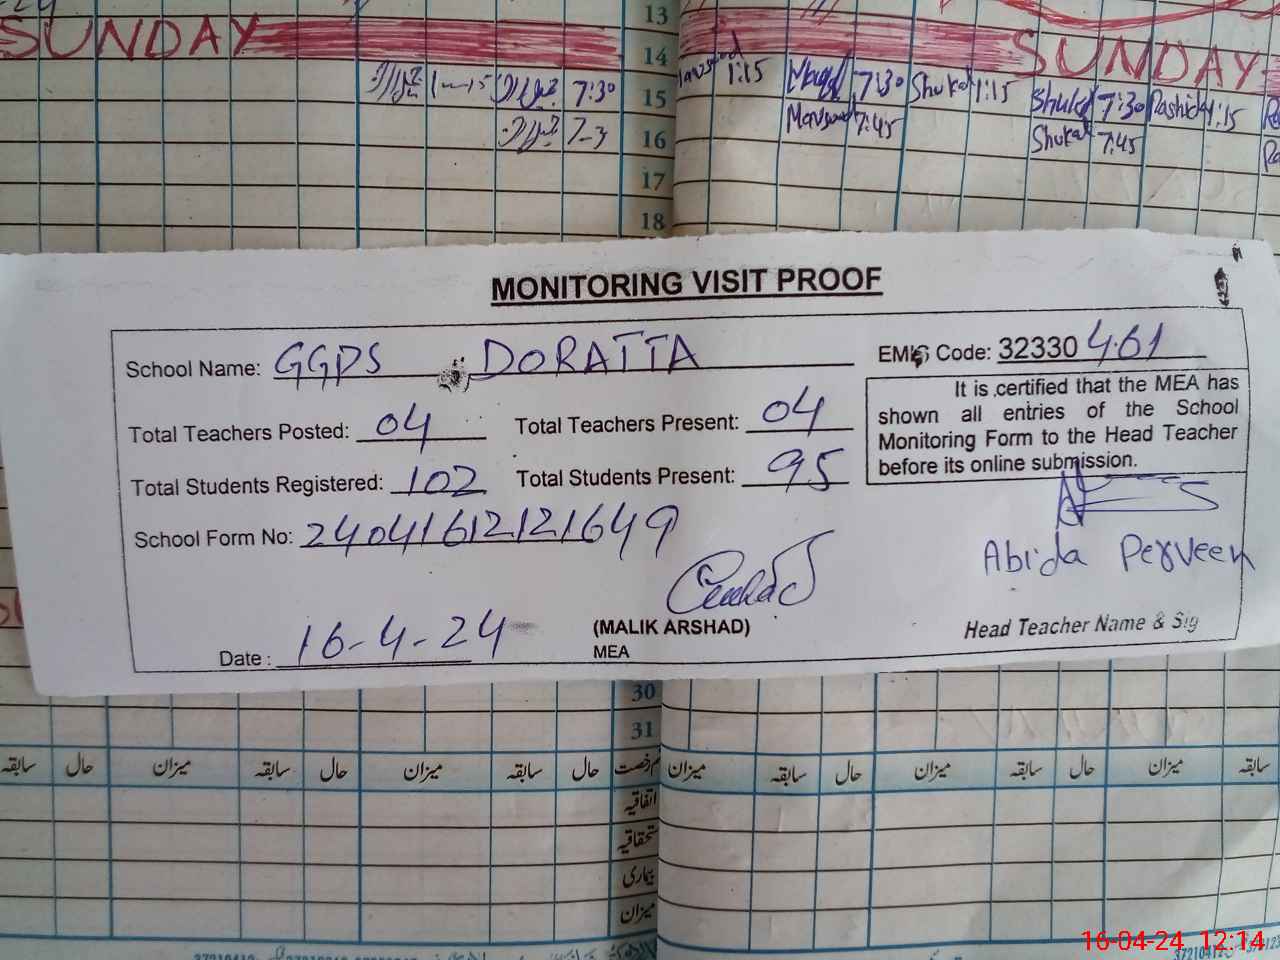 SUNDAY
13
14 SUNDAY
1:15 7:30 15 1:15 7:30 Shukat 1:15 Shukat 7:30 Rashid 1:15
7-3 16 7:45 Shukat 7:45
17
18
MONITORING VISIT PROOF
School Name: GGPS DORATTA EMIS Code: 32330461
Total Teachers Posted: 04 Total Teachers Present: 04
Total Students Registered: 102 Total Students Present: 95
It is certified that the MEA has
shown all entries of the School
Monitoring Form to the Head Teacher
before its online submission.
School Form No: 24041612121649
Abida Perveen
Date : 16-4-24
(MALIK ARSHAD)
MEA
Head Teacher Name & Sig
30
31
سابقہ حال میزان سابقہ حال میزان سابقہ حال رخصت میزان سابقہ حال میزان سابقہ حال میزان سابقہ
اتفاقیہ
استحقاقیہ
بیماری
میزان
16-04-24 12:14